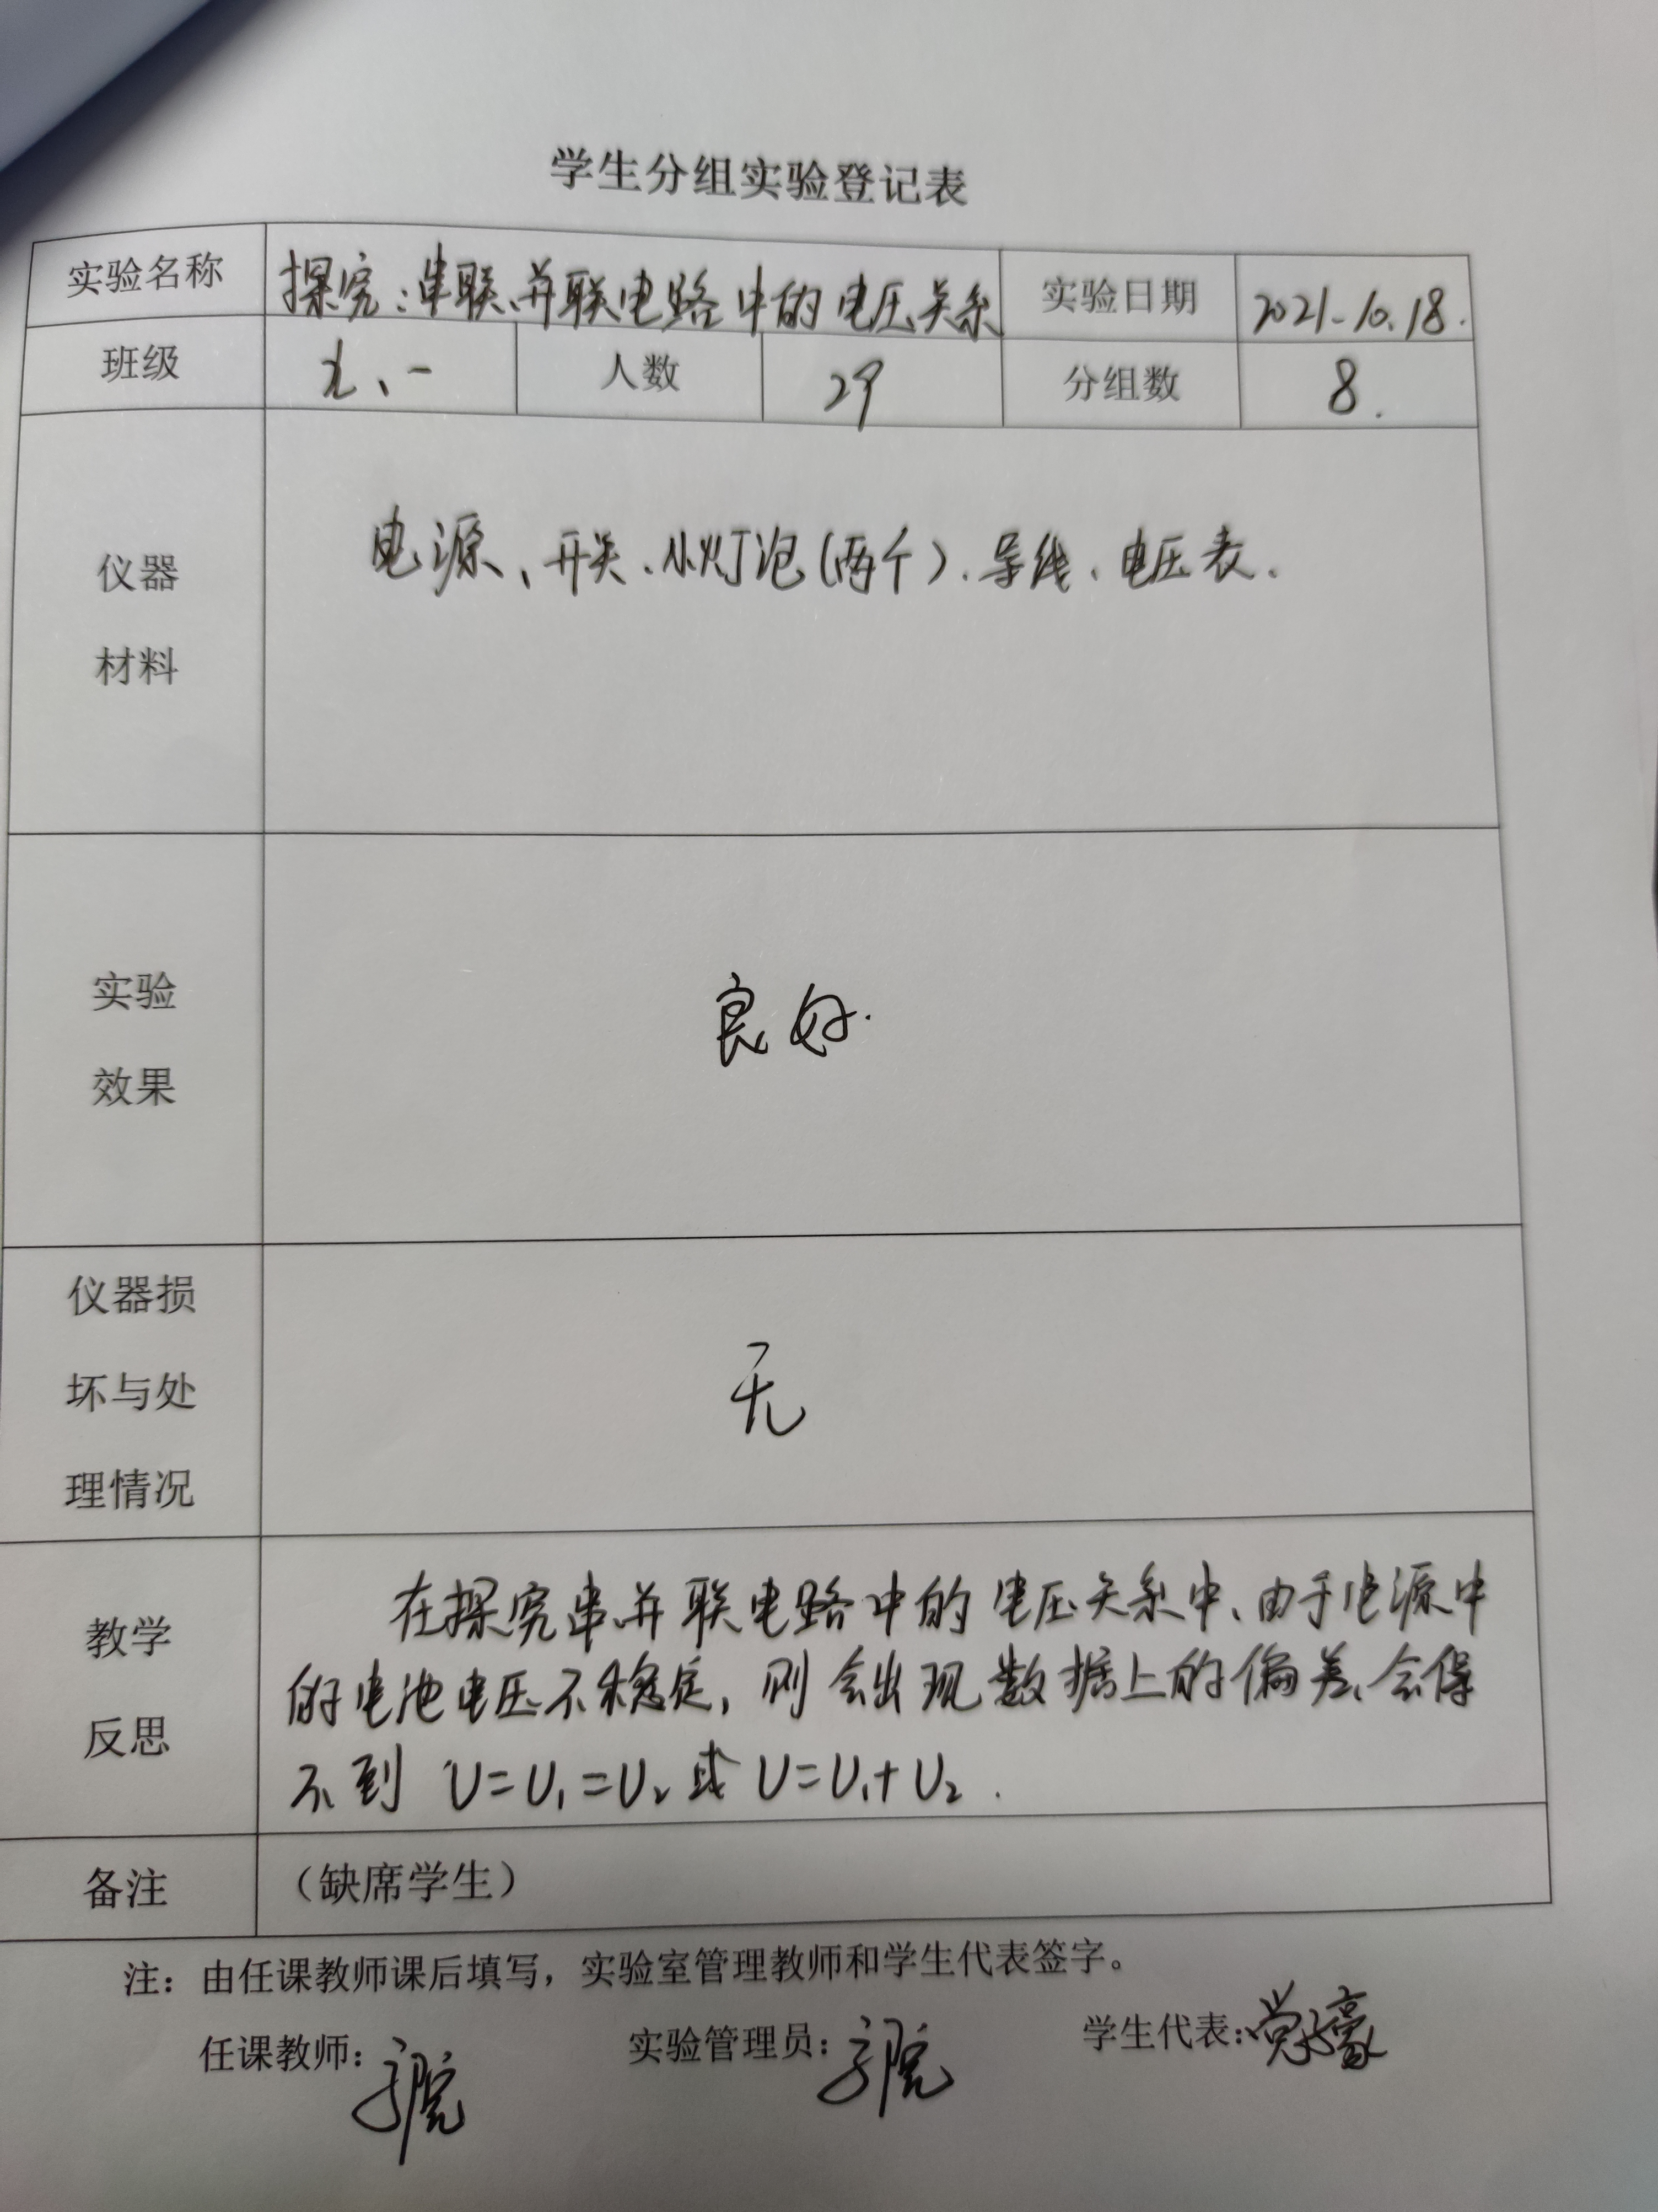 学生分组实验登记表
实验名称 探究:串联、并联电路中的电压关系 实验日期 2021.10.18.
班级 九、一 人数 29 分组数 8.
仪器 电源、开关、小灯泡(两个)、导线、电压表.
材料
实验 良好.
效果
仪器损
坏与处 无
理情况
教学 在探究串并联电路中的电压关系中、由于电源中
的电池电压不稳定,则会出现数据上的偏差、会得
反思
不到 U=U₁=U₂ 或 U=U₁+U₂.
备注 (缺席学生)
注:由任课教师课后填写,实验室管理教师和学生代表签字。
任课教师: 实验管理员: 学生代表: